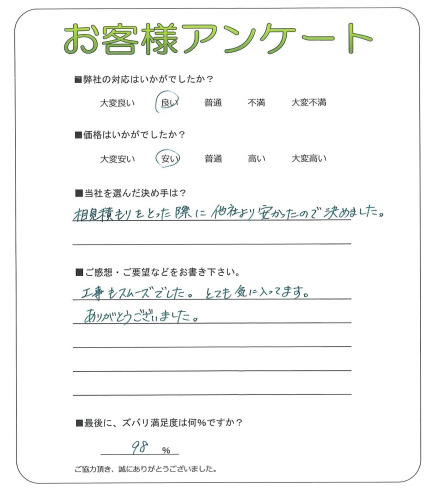 お客様アンケート
■弊社の対応はいかがでしたか？
大変良い 良い 普通 不満 大変不満
■価格はいかがでしたか？
大変安い 安い 普通 高い 大変高い
■当社を選んだ決め手は？
相見積もりをとった際に他社より安かったので決めました。
■ご感想・ご要望などをお書き下さい。
工事もスムーズでした。とても気に入ってます。
ありがとうございました。
■最後に、ズバリ満足度は何％ですか？
98 ％
ご協力頂き、誠にありがとうございました。